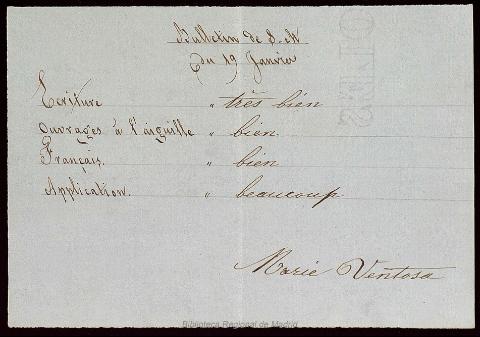 Bulletin de S. M
Du 19 Janvier
Ecriture " très bien
Ouvrages à l'aiguille " bien.
Français. " bien
Application. " beaucoup.
Marie Ventosa
Biblioteca Regional de Madrid